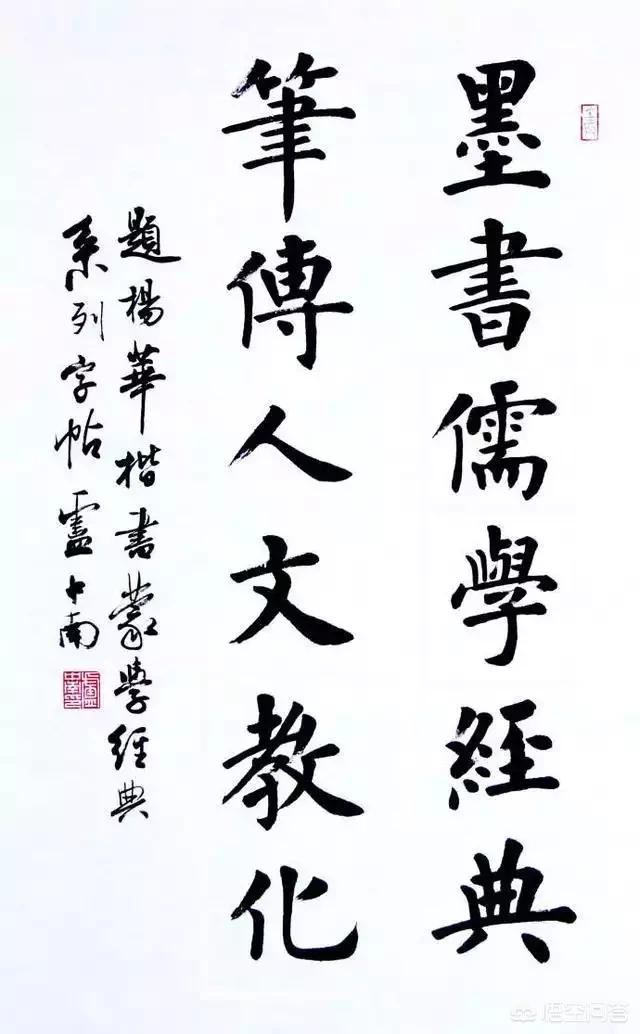 墨書儒學經典
筆傳人文教化
題楊華楷書蒙學經典
系列字帖盧中南
悟空问答